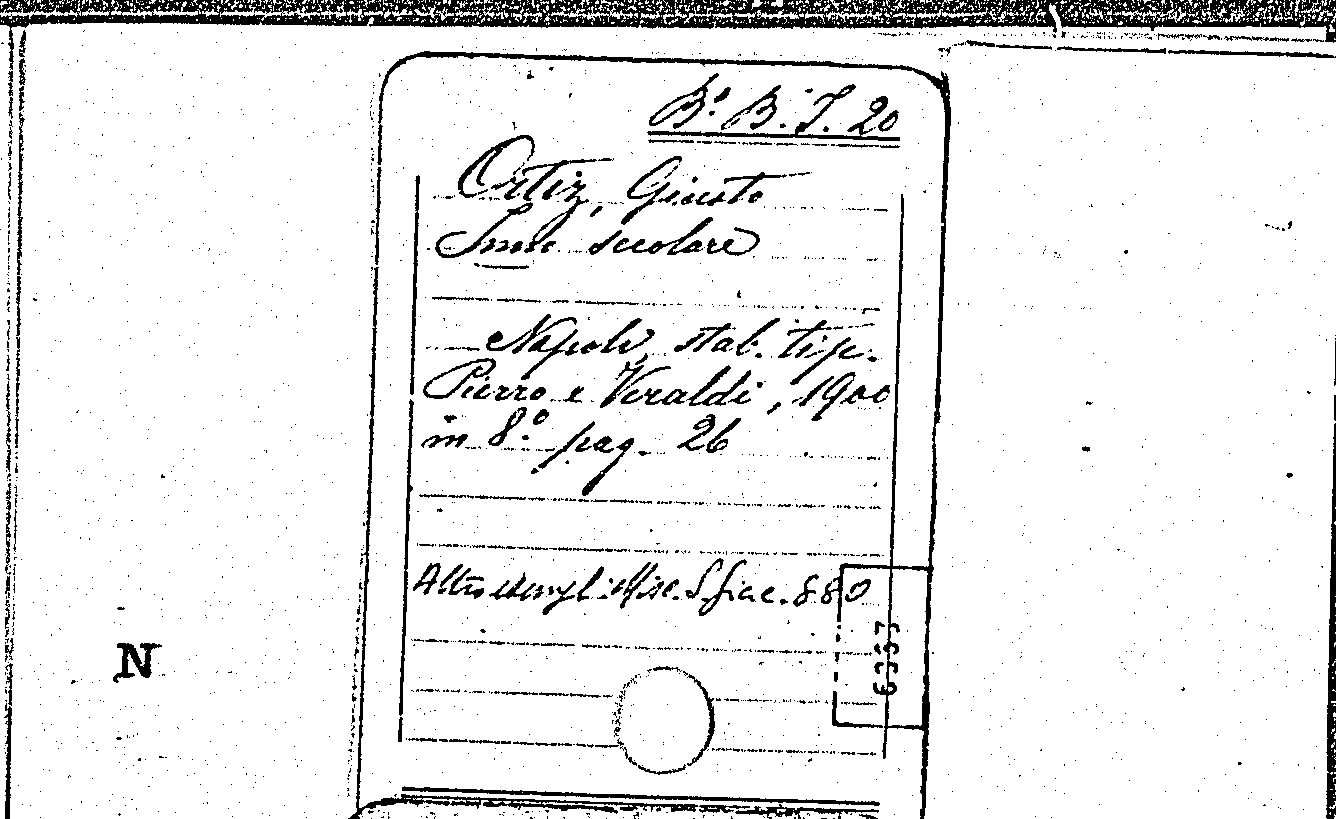 Bª. B. I. 20
Ortiz, Giusto
Inno secolare
Napoli, stab. tip.
Pierro e Veraldi, 1900
in 8.º pag. 26
Altro esempl: Misc. S. fasc. 880
6337
N